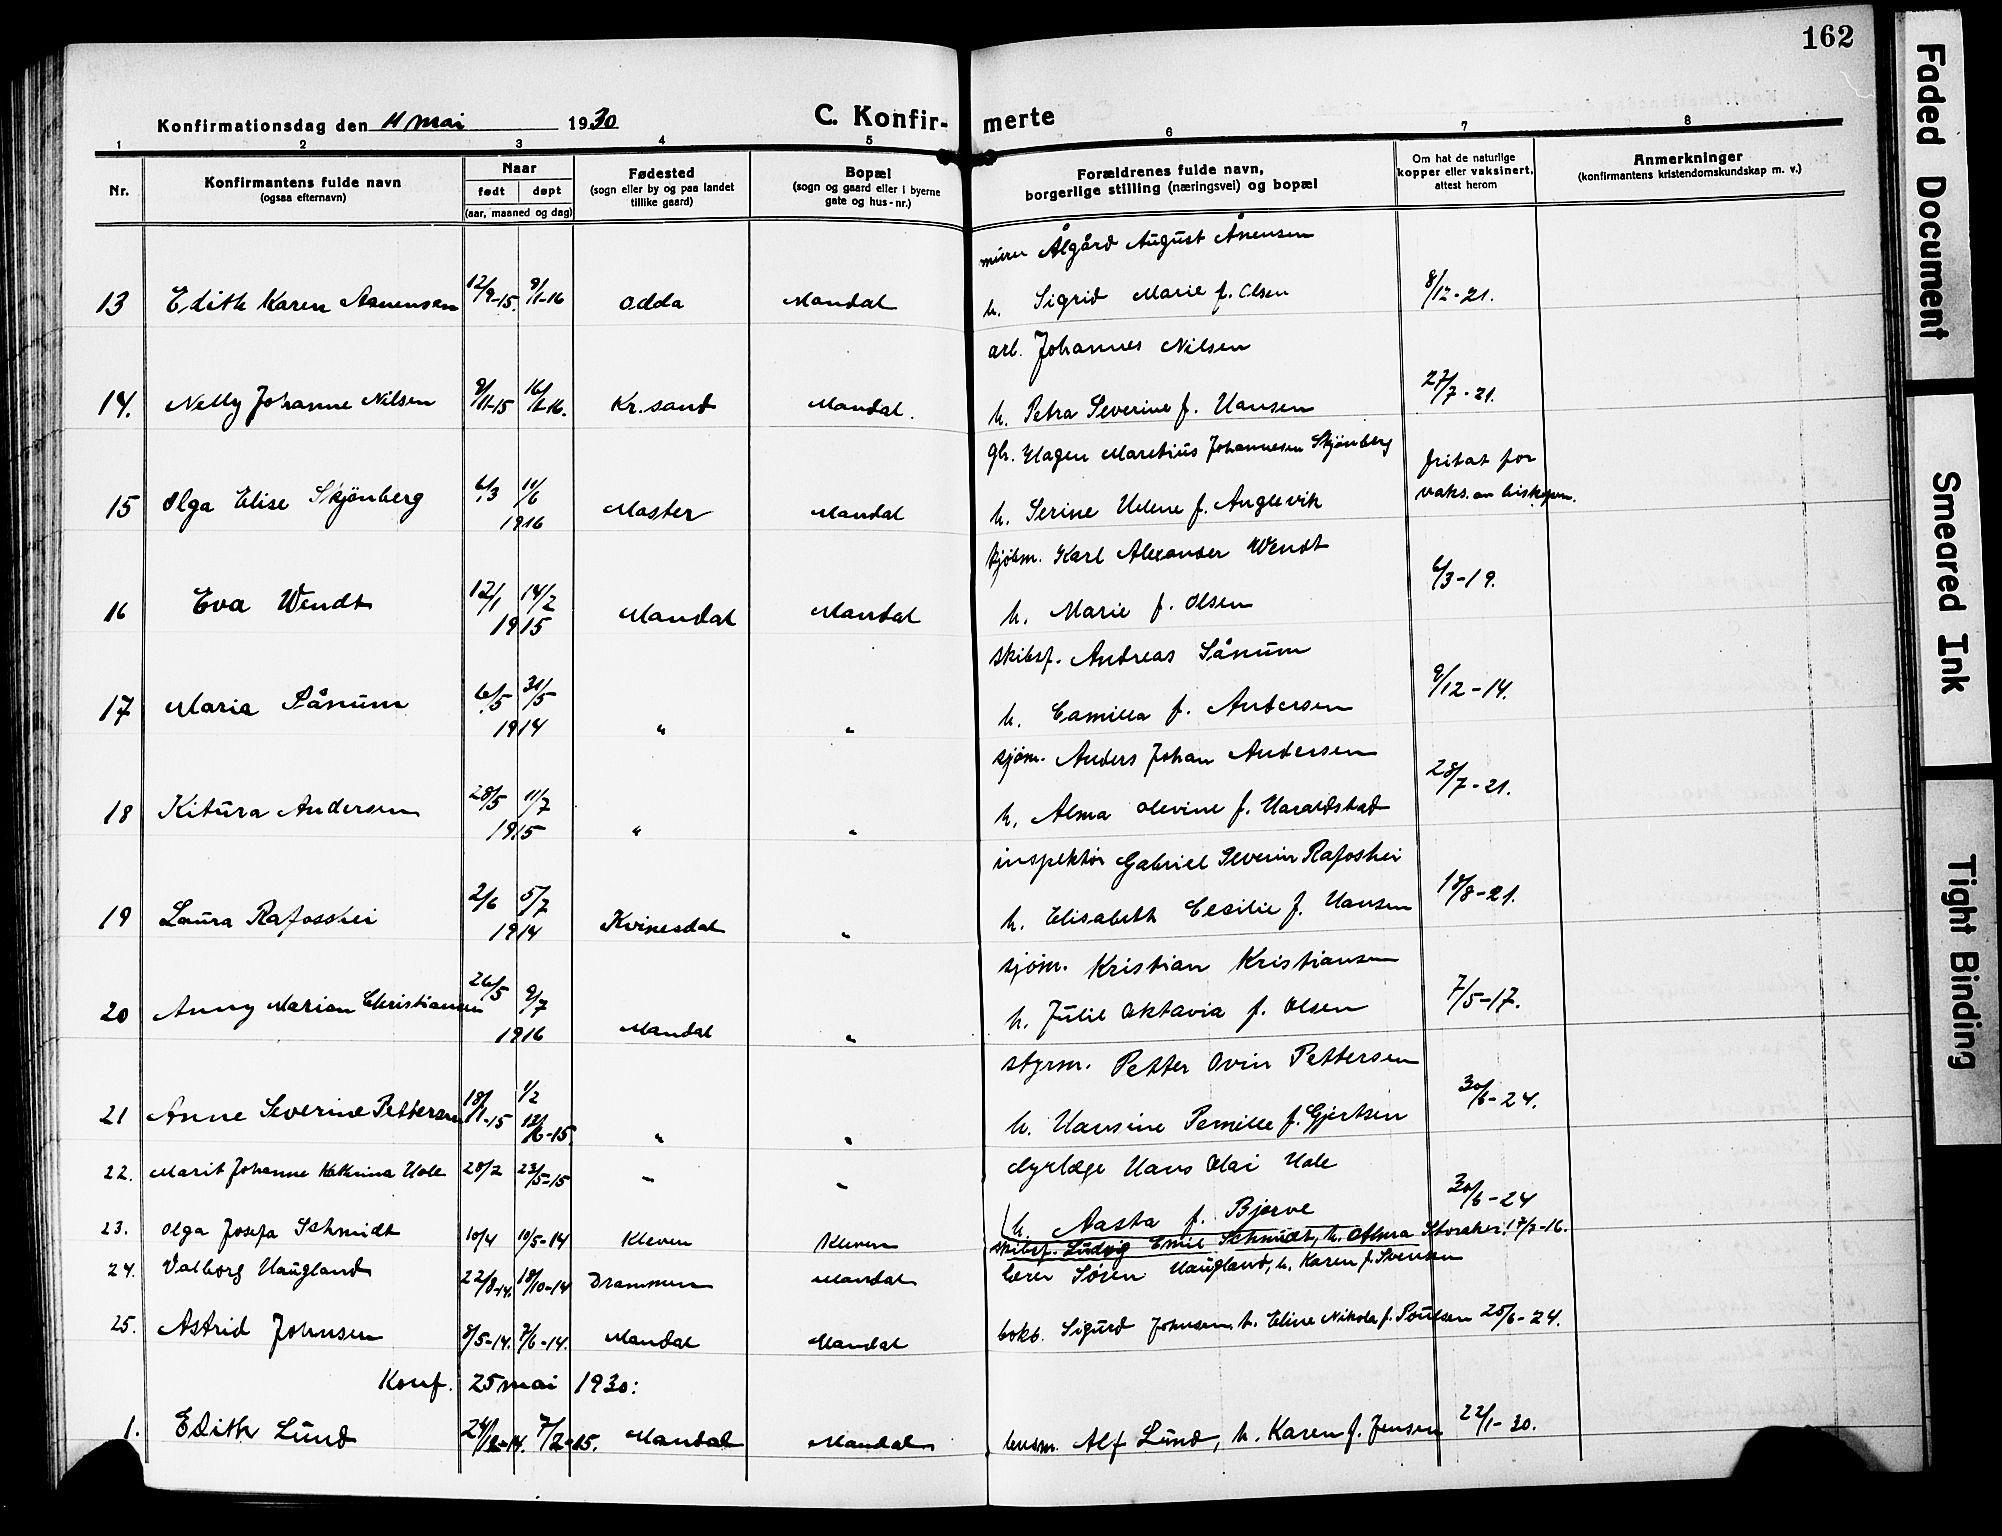 162
Konfirmationsdag den 11 mai 1930
C. Konfir- merte
1 2 3 4 5 6 7 8
Nr.
Konfirmantens fulde navn
(ogsaa efternavn)
Naar
født døpt
(aar, maaned og dag)
Fødested
(sogn eller by og paa landet
tillike gaard)
Bopæl
(sogn og gaard eller i byerne
gate og hus-nr.)
Forældrenes fulde navn,
borgerlige stilling (næringsvei) og bopæl
Om hat de naturlige
kopper eller vaksinert,
attest herom
Anmerkninger
(konfirmantens kristendomskundskap m. v.)
murer Ålgård August Ånensen
13 Edith Karen Aanensen 12/9-15. 9/1-16 Odda Mandal h. Sigrid Marie f. Olsen 8/12-21.
arb. Johannes Nilsen
14. Nelly Johanne Nilsen 9/11-15 16/1-16. Kr.sand Mandal. h. Petra Severine f. Hansen 27/7-21.
gb. Hagen Maretius Johannesen Skjønberg fritat for
15 Olga Elise Skjønberg 6/3 11/6 Moster Mandal h. Serine Helene f. Anglevik vaks. av biskopen.
1916
kjøbm. Karl Alexander Wendt
16 Eva Wendt 12/1 14/2 Mandal Mandal h. Marie f. Olsen 6/3-19.
1915
skibsf. Andreas Sånum
17 Maria Sånum 6/5 31/5 " " h. Camilla f. Andersen 9/12-14.
1914
sjøm. Anders Johan Andersen
18 Kitura Andersen 28/5 11/7 " " h. Alma Olevine f. Haraldstad 28/7-21.
1915
inspektør Gabriel Severin Rafoshei
19 Laura Rafosshei 2/6 5/7 Kvinesdal " h. Elisabeth Cecilie f. Hansen 18/8-21.
1914
sjøm. Kristian Kristiansen
20 Anny Marion Christiansen 26/5 9/7 Mandal " h. Julie Oktavia f. Olsen 7/5-17.
1916
styrm. Petter Ovin Pettersen
21 Anne Severine Pettersen 18/1-15 1/2 " " h. Hansine Pernille f. Gjertsen 30/6-24.
13/6-15.
22. Marit Johanne Kathrina Hole 28/2 23/5-15 " " dyrlæge Hans Olai Hole
h. Aasta f. Bjerve 30/6-24
23. Olga Josefa Schmidt 10/4 10/5-14 Kleven Kleven skibsf. Ludvig Emil Schmidt, h. Othma Storaker. 17/7-16.
24. Valborg Haugland 22/8-14. 18/10-14 Drammen Mandal lærer Søren Haugland, h. Karen f. Svensen
25. Astrid Johnsen 8/5-14. 7/6-14. Mandal Mandal bokb. Sigurd Johnsen, h. Eline Nikola f. Poulsen 25/6-24.
Konf. 25 mai 1930:
1. Edith Lund 24/12-14. 7/2-15. Mandal Mandal Alf Lund, h. Karen f. Jensen 22/1-30.
Faded Document
Smeared Ink
Tight Binding